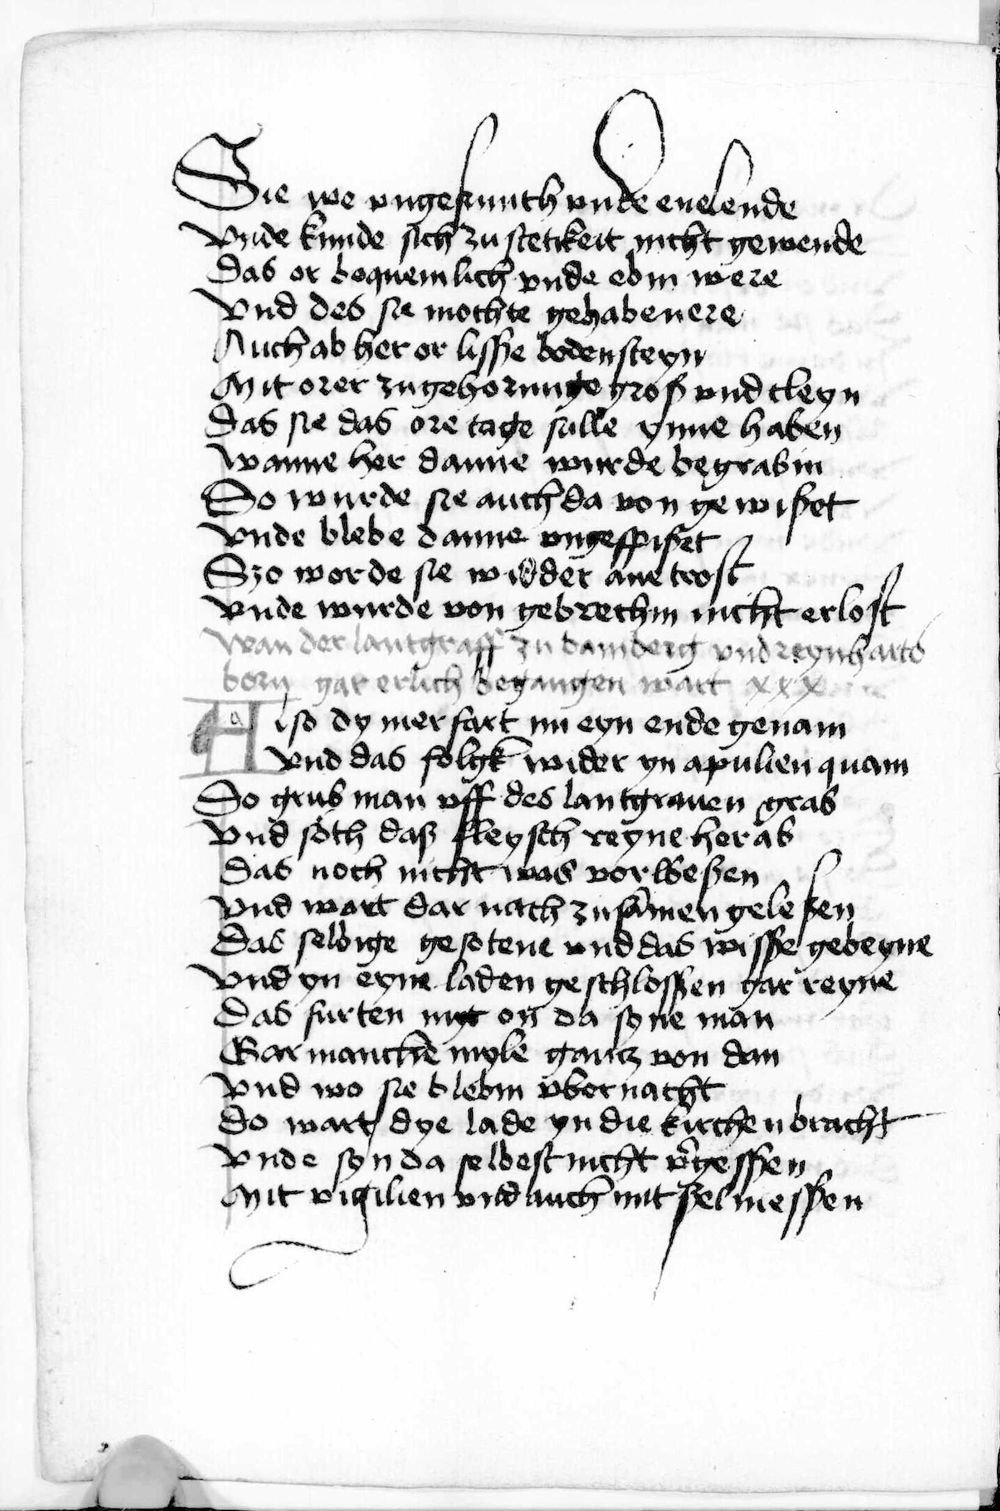 Sie we vngesunth vnde enelende
vnde kunde sich zu stetikeit nicht gewende
Das or bequemlich vnde ebin were
vnd des sie mochte gehabenere
Auch ab her or lisse bodensteyn
Mit orer zugehorunge groß vnd cleyn
Das sie das ore tage sulle ynne haben
wanne her danne wurde begrabin
So wurde sie auch da von gewißet
vnde blebe danne vngespißet
Szo worde sie widder ane trost
vnde wurde von gebrechin nicht erlost
wan der lantgraff zu bamberg vnd reynharts
born gar erlich begangen wart xxx
Also dy merfart nu eyn ende genam
vnd das folgk wider yn apulien quam
So grub man vff des lantgrauen grab
vnd soth daß fleysch reyne herab
Das noch nicht was vorweßen
vnd wart dar nach zusamen geleßen
Das selbige gesotene vnd das wisse gebeyne
vnd yn eyne laden geschlossen gar reyne
Das furten myt on da syne man
Gar manche myle gantz von dan
vnd wo sie blebin vbernacht
do wart dye lade yn die kirchen bracht
vnde syn da selbest nicht vergessen
Mit vigilien vnd auch mit ßelmessen